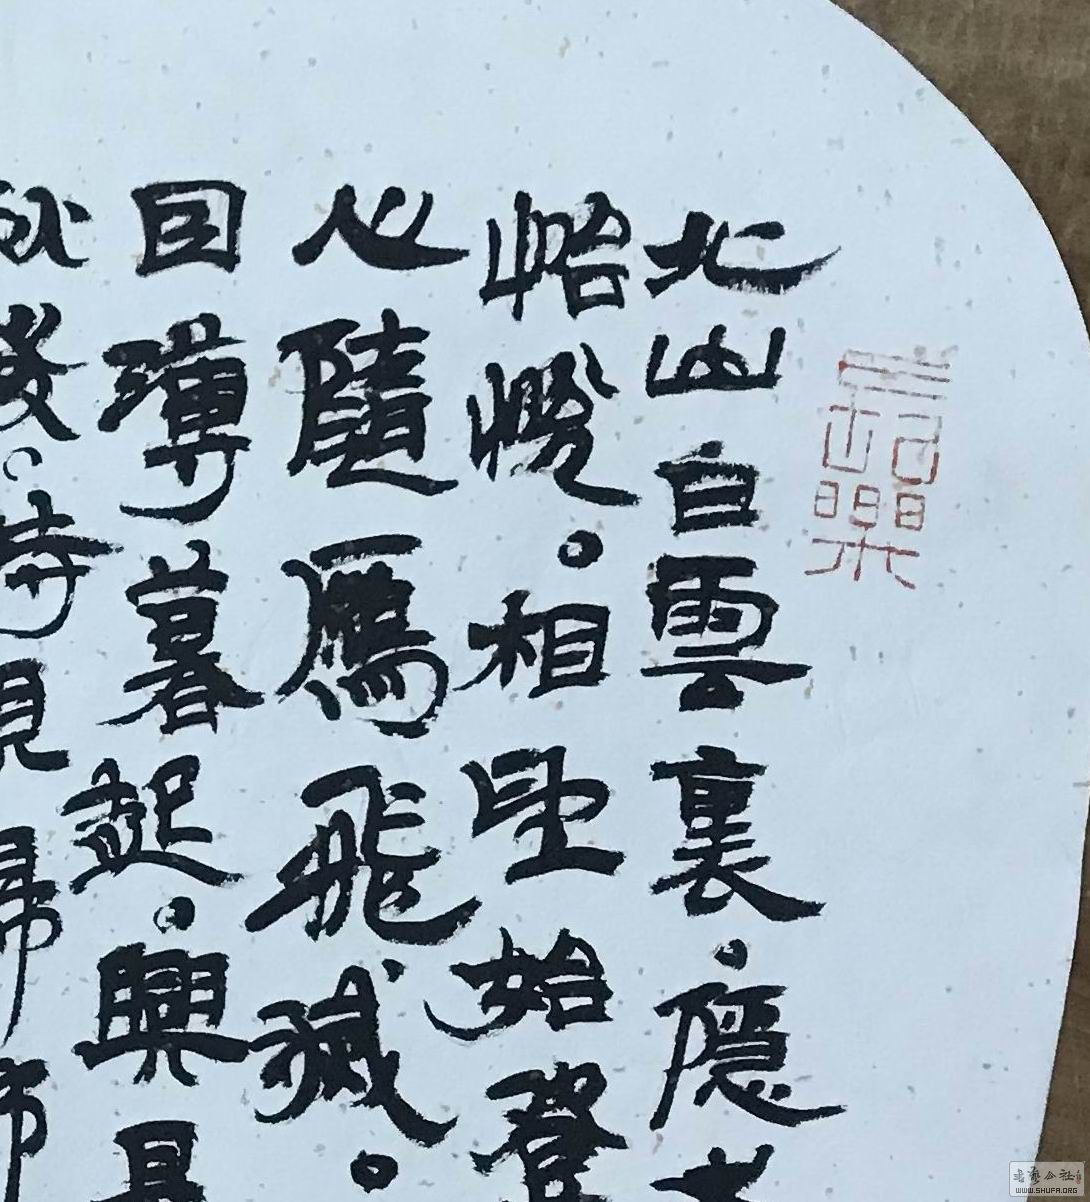 北山白雲裏。隱者
怡悅。相望始登
心隨鴈飛滅。
因薄暮起。興是
秋發。時見歸
長樂
書藝公社
WWW.SHUFA.ORG